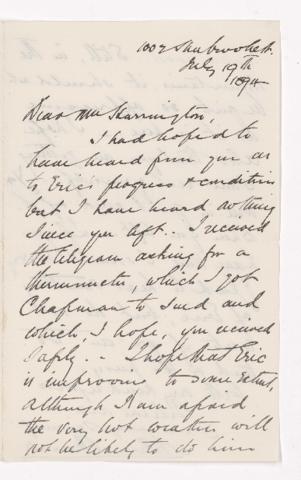 1007 Sherbrooke St.
July 19th
1894
Dear Mrs Harrington,
I had hoped to
have heard from you as
to Eric's progress & condition
but I have heard nothing
since you left. I received
the telegram asking for a
thermometer, which I got
Chapman to send and
which, I hope, you received
safely. - I hope that Eric
is improving to some extent,
although I am afraid
the very hot weather will
not be likely to do him